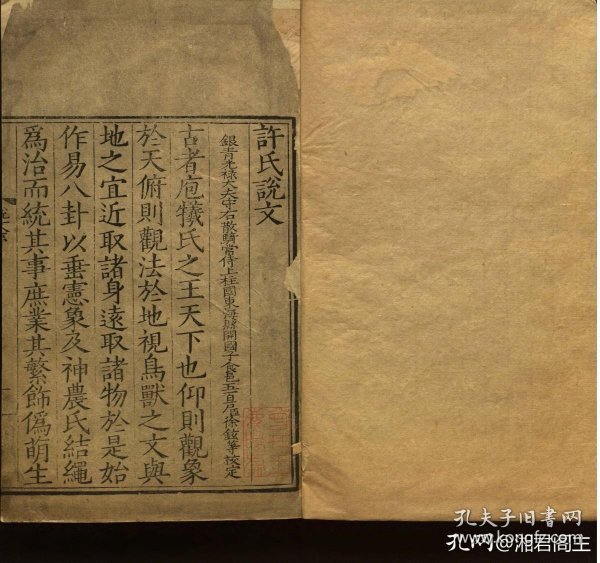 許氏說文
銀青光祿大夫守右散騎常侍上柱國東海縣開國子食邑五百户徐鉉等校定
古者庖犧氏之王天下也仰則觀象
於天俯則觀法於地視鳥獸之文與
地之宜近取諸身遠取諸物於是始
作易八卦以垂憲象及神農氏結繩
爲治而統其事庶業其繁飾僞萌生
孔夫子旧书网
www.kongfz.com
孔网@湘君阁主